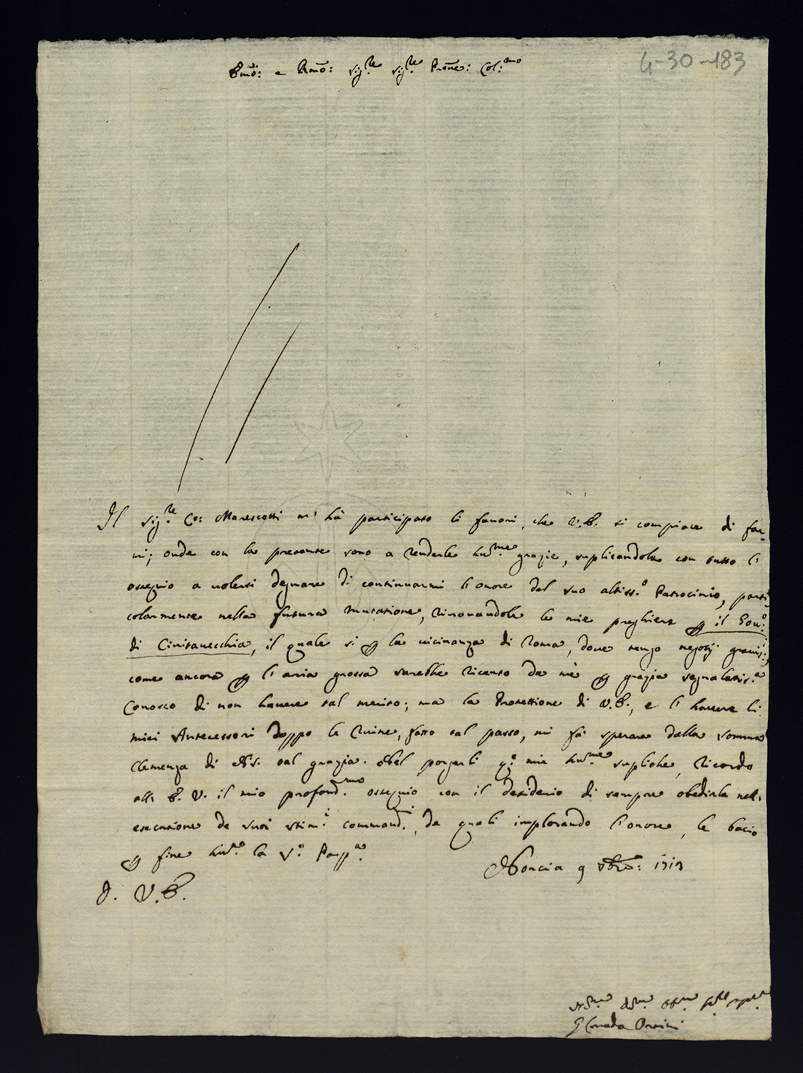 4-30-183
Em̃o: e Rm̃o: Sig.re Sig.re Pr̃one: Col:mo
Il Sig.re Co: Marescotti m'hà participato li favori, che V.E. si compiace di far-
mi; onde con la presente sono a renderle hum.me grazie, suplicandola con tutto l'
ossequio a volersi degnare di continuarmi l'onore del suo altiss.o Patrocinio, parti-
colarmente nella futura mutatione, rinovandole le mie preghiere p il Gov.o
di Civitavecchia, il quale si p la vicinanza di Roma, dove tengo negotij gravis:
come ancora p l'aria grossa sarebbe ricevuto da mè p grazia segnalatis.a
Conosco di non havere tal merito; ma la Protettione di V.E., e l'havere li
miei Antecessori doppo le Ruine, fatto tal passo, mi fà sperare dalla somma
Clemenza di N.S. tal grazia. Nel porgerli q.e mie hum.me supliche, ricordo
all' E.V. il mio profond.mo ossequio con il desiderio di sempre obedirla nell'
esecuzione de suoi stim.i command.i, da quali implorando l'onore, le bacio
p fine hum.e la
Norcia 9
D. V.E.
Corrado Orsini